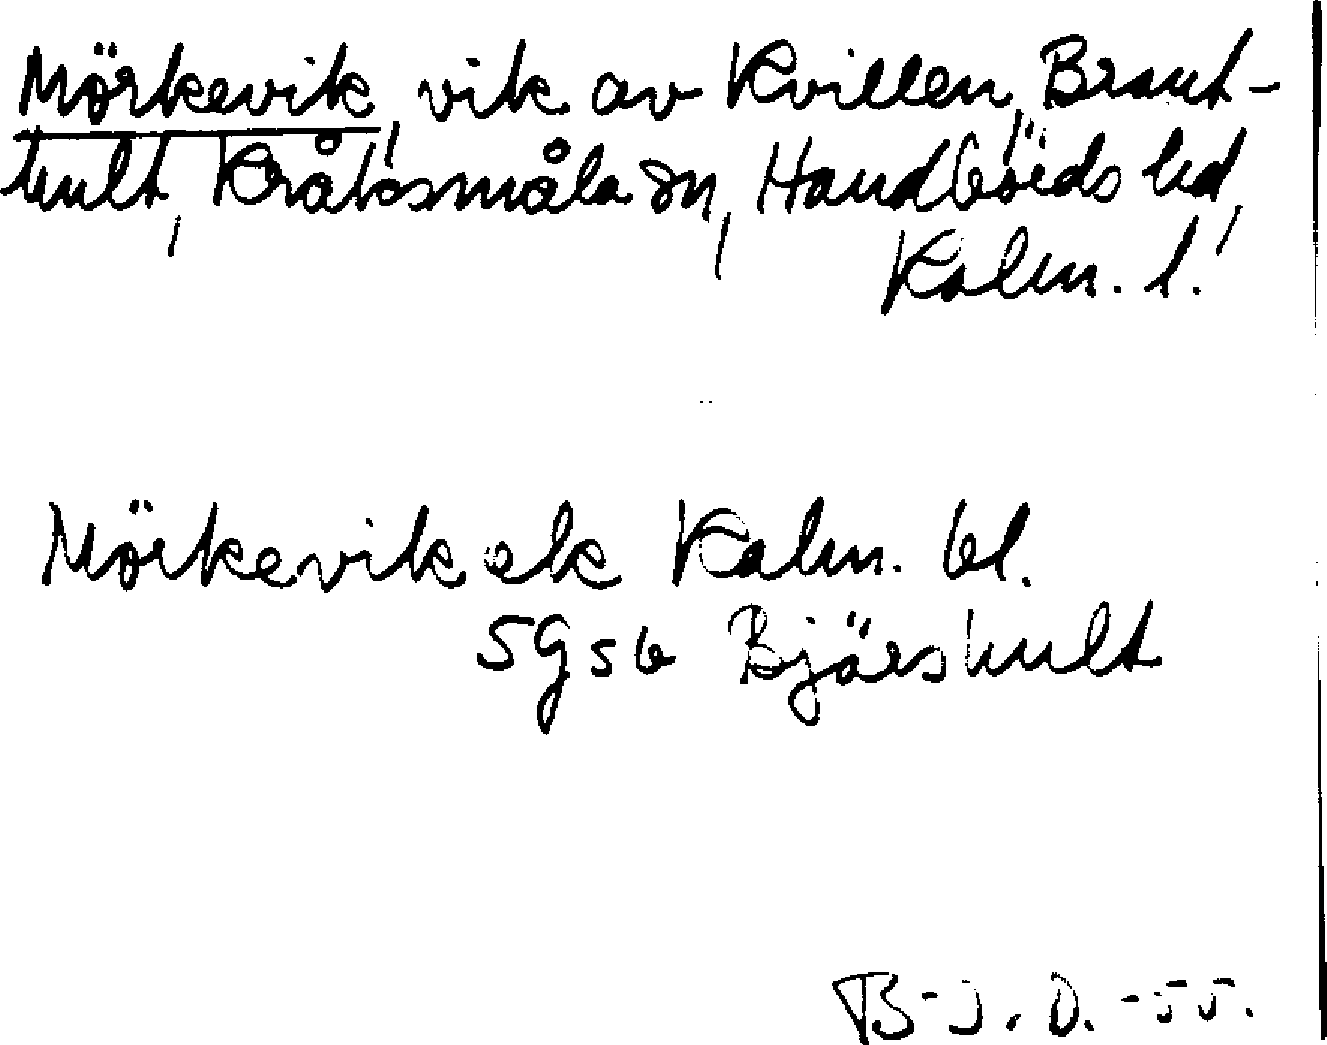 Mörkevik, vik av Kvillen, Brant-
hult, Kråksmåla sn, Handbörds hd,
Kalm. l.
Mörkevik ek Kalm. bl.
5G5b Bjärshult
B-J. O. -55.